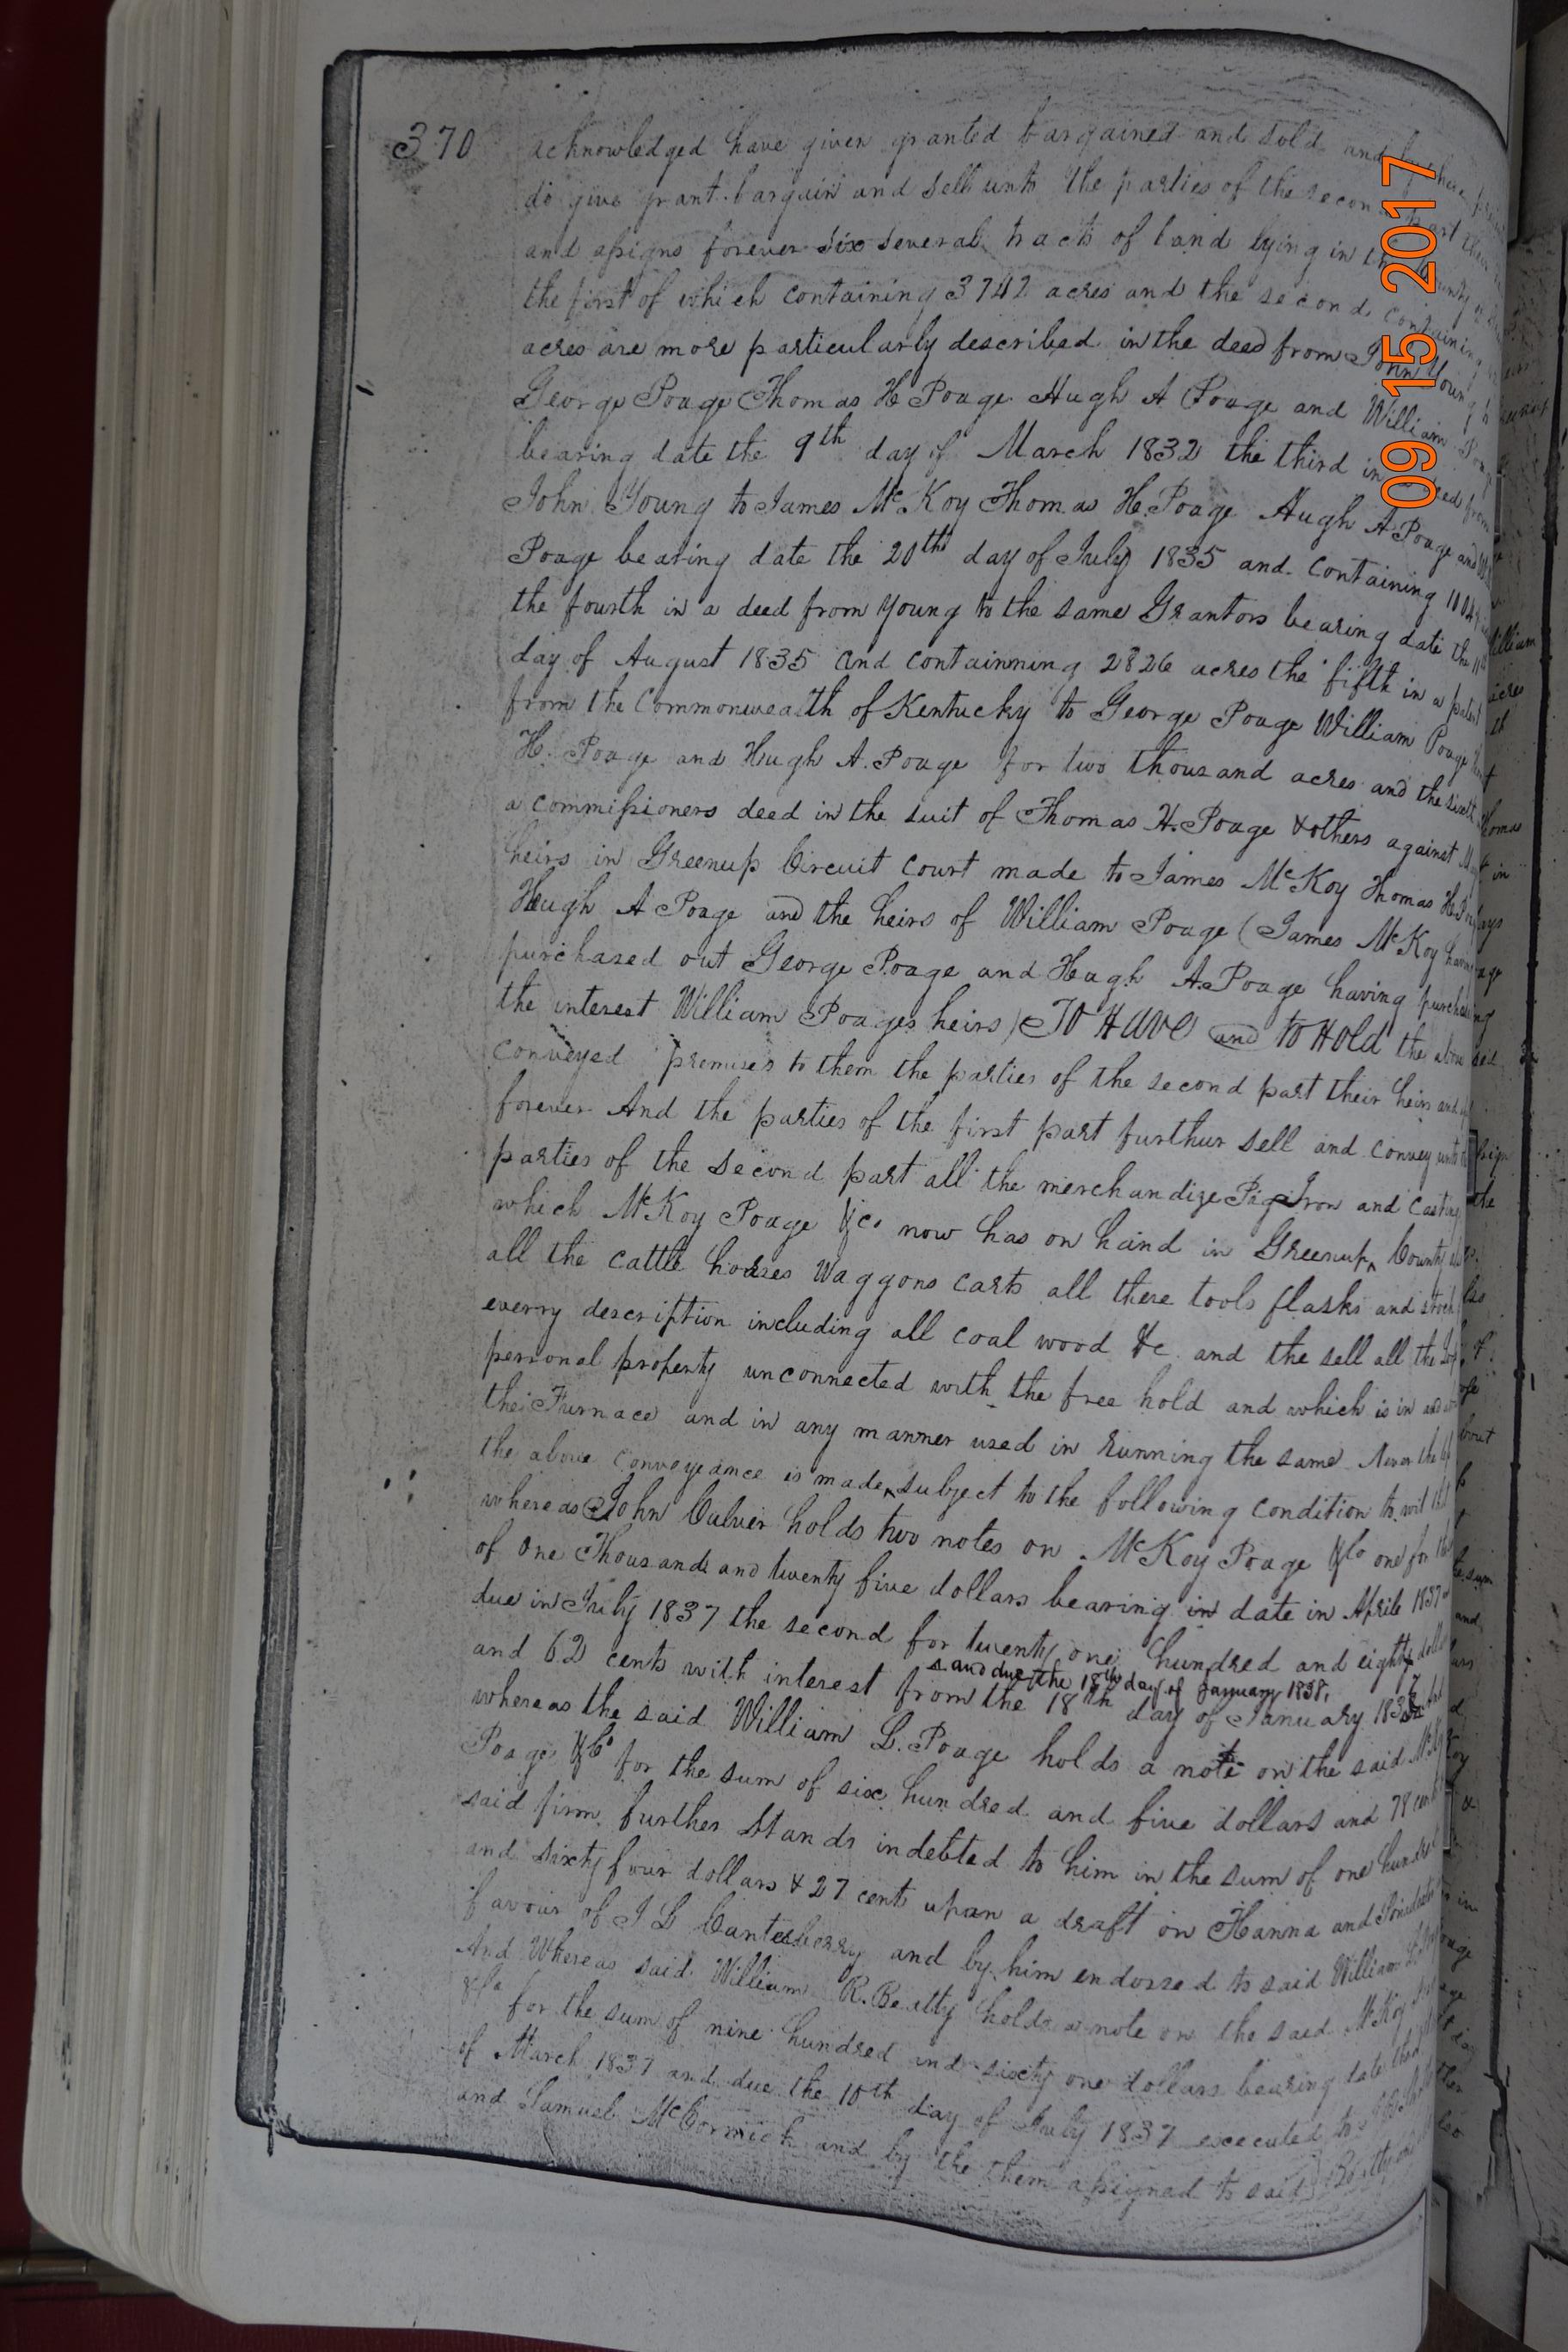 370
acknowledged have given granted bargained and sold and by these
do give grant bargain and sell unto the parties of the second part their
and assigns forever six several tracts of land lying in the County of
the first of which containing 3742 acres and the second containing
acres are more particularly described in the deed from John Young to
George Poage Thomas H Poage Hugh A Poage and William Poage
bearing date the 9th day of March 1832 the third in deed from
John Young to James McKoy Thomas H. Poage Hugh A Poage and William
Poage bearing date the 20th day of July 1835 and containing acres
the fourth in a deed from Young to the same Grantors bearing date the 11th
day of August 1835 and containning 2826 acres the fifth in a patent
from the Commonwealth of Kentucky to George Poage William Poage Thomas
H. Poage and Hugh A. Poage for two thousand acres and the sixth in
a commissioners deed in the suit of Thomas H. Poage & others against Mays
heirs in Greenup Circuit court made to James McKoy Thomas H. Poage
Hugh A Poage and the heirs of William Poage (James McKoy having
purchased out George Poage and Hugh A. Poage having purchased
the interest William Poages heirs) To Have and to Hold the above
conveyed premises to them the parties of the second part their heirs and assigns
forever And the parties of the first part furthur sell and convey unto the
parties of the second part all the merchandize Pig Iron and Castings
which McKoy Poage & Co now has on hand in Greenup County also
all the cattle horses Waggons carts all there tools flasks and stock of
everry description including all coal wood &c. and the sell all the
personal property unconnected with the free hold and which is in and about
the Furnace and in any manner used in running the same Never the less
the above conveyeance is made subject to the following condition to wit that
whereas John Culver holds two notes on McKoy Poage & Co one for the sum
of One Thousand and twenty five dollars bearing in date in Aprile 1837 and
due in July 1837 the second for twenty one hundred and eighty dollars
and 62 cents with interest from the 18th day of January 1837 and
s and due the 18th day of January 1838,
whereas the said William L. Poage holds a note on the said McKoy
Poage & Co for the sum of six hundred and five dollars and 78 cents &
said firm further stands indebted to him in the sum of one hundred
and sixty four dollars & 27 cents upon a draft on Hanna and in
favour of J L Canterberry and by him endorsed to said William L Poage
And Whereas said William R. Beatty holds a note on the said McKoy Poage
& Co for the sum of nine hundred and sixty one dollars bearing date the 1st day
of March 1837 and due the 10th day of July 1837 excecuted to
and Samuel McCormick and by the them assigned to said Beatty